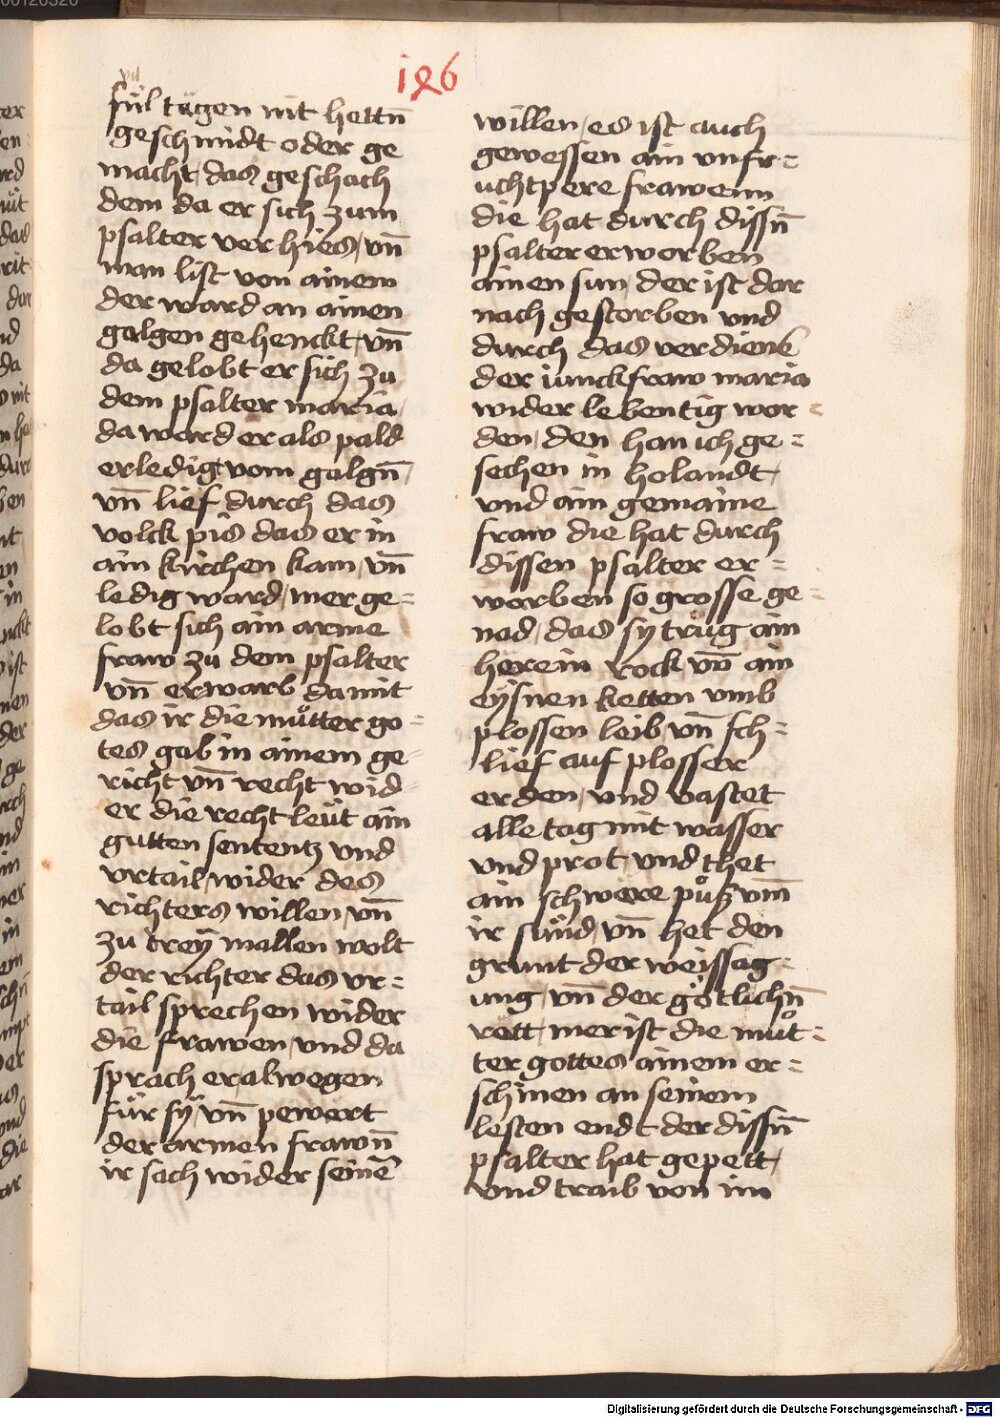 186
fül tugen nit hettn̄
geschmidt oder ge
macht, das geschach
dem da er sich zum
psalter verhies, vn̄
man list von ainem
der ward an ainen
galgen gehenckt, vn̄
da gelobt er sich zu
dem psalter maria,
da ward er als pald
erledigt vom galgn̄,
vn̄ lief durch das
volck pis das er in
ain kirchen kam, vn̄
ledig ward, mer ge=
lobt sich ain arme
fraw zu dem psalter
vn̄ erwarb damit
das ir die muͦtter go=
tes gab in ainem ge
richt vn̄ recht wid
er die recht leüt ain
gutten sententz vnd
vrtail, wider des
richters willen, vn̄
zu treÿ mallen wolt
der richter das vr=
tail sprechen wider
die frawen, vnd da
sprach er alwegen
für sÿ, vn̄ pewert
der armen frawn̄
ir sach wider seinē
willen, es ist auch
gewessen ain vnfr=
uchtpere frawenn
die hat durch dissn̄
psalter erworben
ainen sun, der ist dar
nach gestorben vnd
durch das verdiens
der iunckfraw maria
wider lebentig wor=
den, den han ich ge=
sechen in holandt,
vnd ain gemaine
fraw die hat durch
dissen psalter er=
worben so grosse ge=
nad, das sy truͦg ain
herein rock vn̄ ain
eÿsnen ketten vmb
plossen leib, vn̄ sch=
lief auf plosser
erden, vnd vastet
alle tag mit wasser
vnd prot vnd thet
ain schwere puͦß vm̄
ir sünd vn̄ het den
grunt der weissag=
ung, vn̄ der götlichn̄
rett, mer ist die muͦt=
ter gottes ainem er=
schinen an seinem
lesten endt der dissn̄
psalter hat gepett,
vnd traib von im
Digitalisierung gefördert durch die Deutsche Forschungsgemeinschaft - DFG